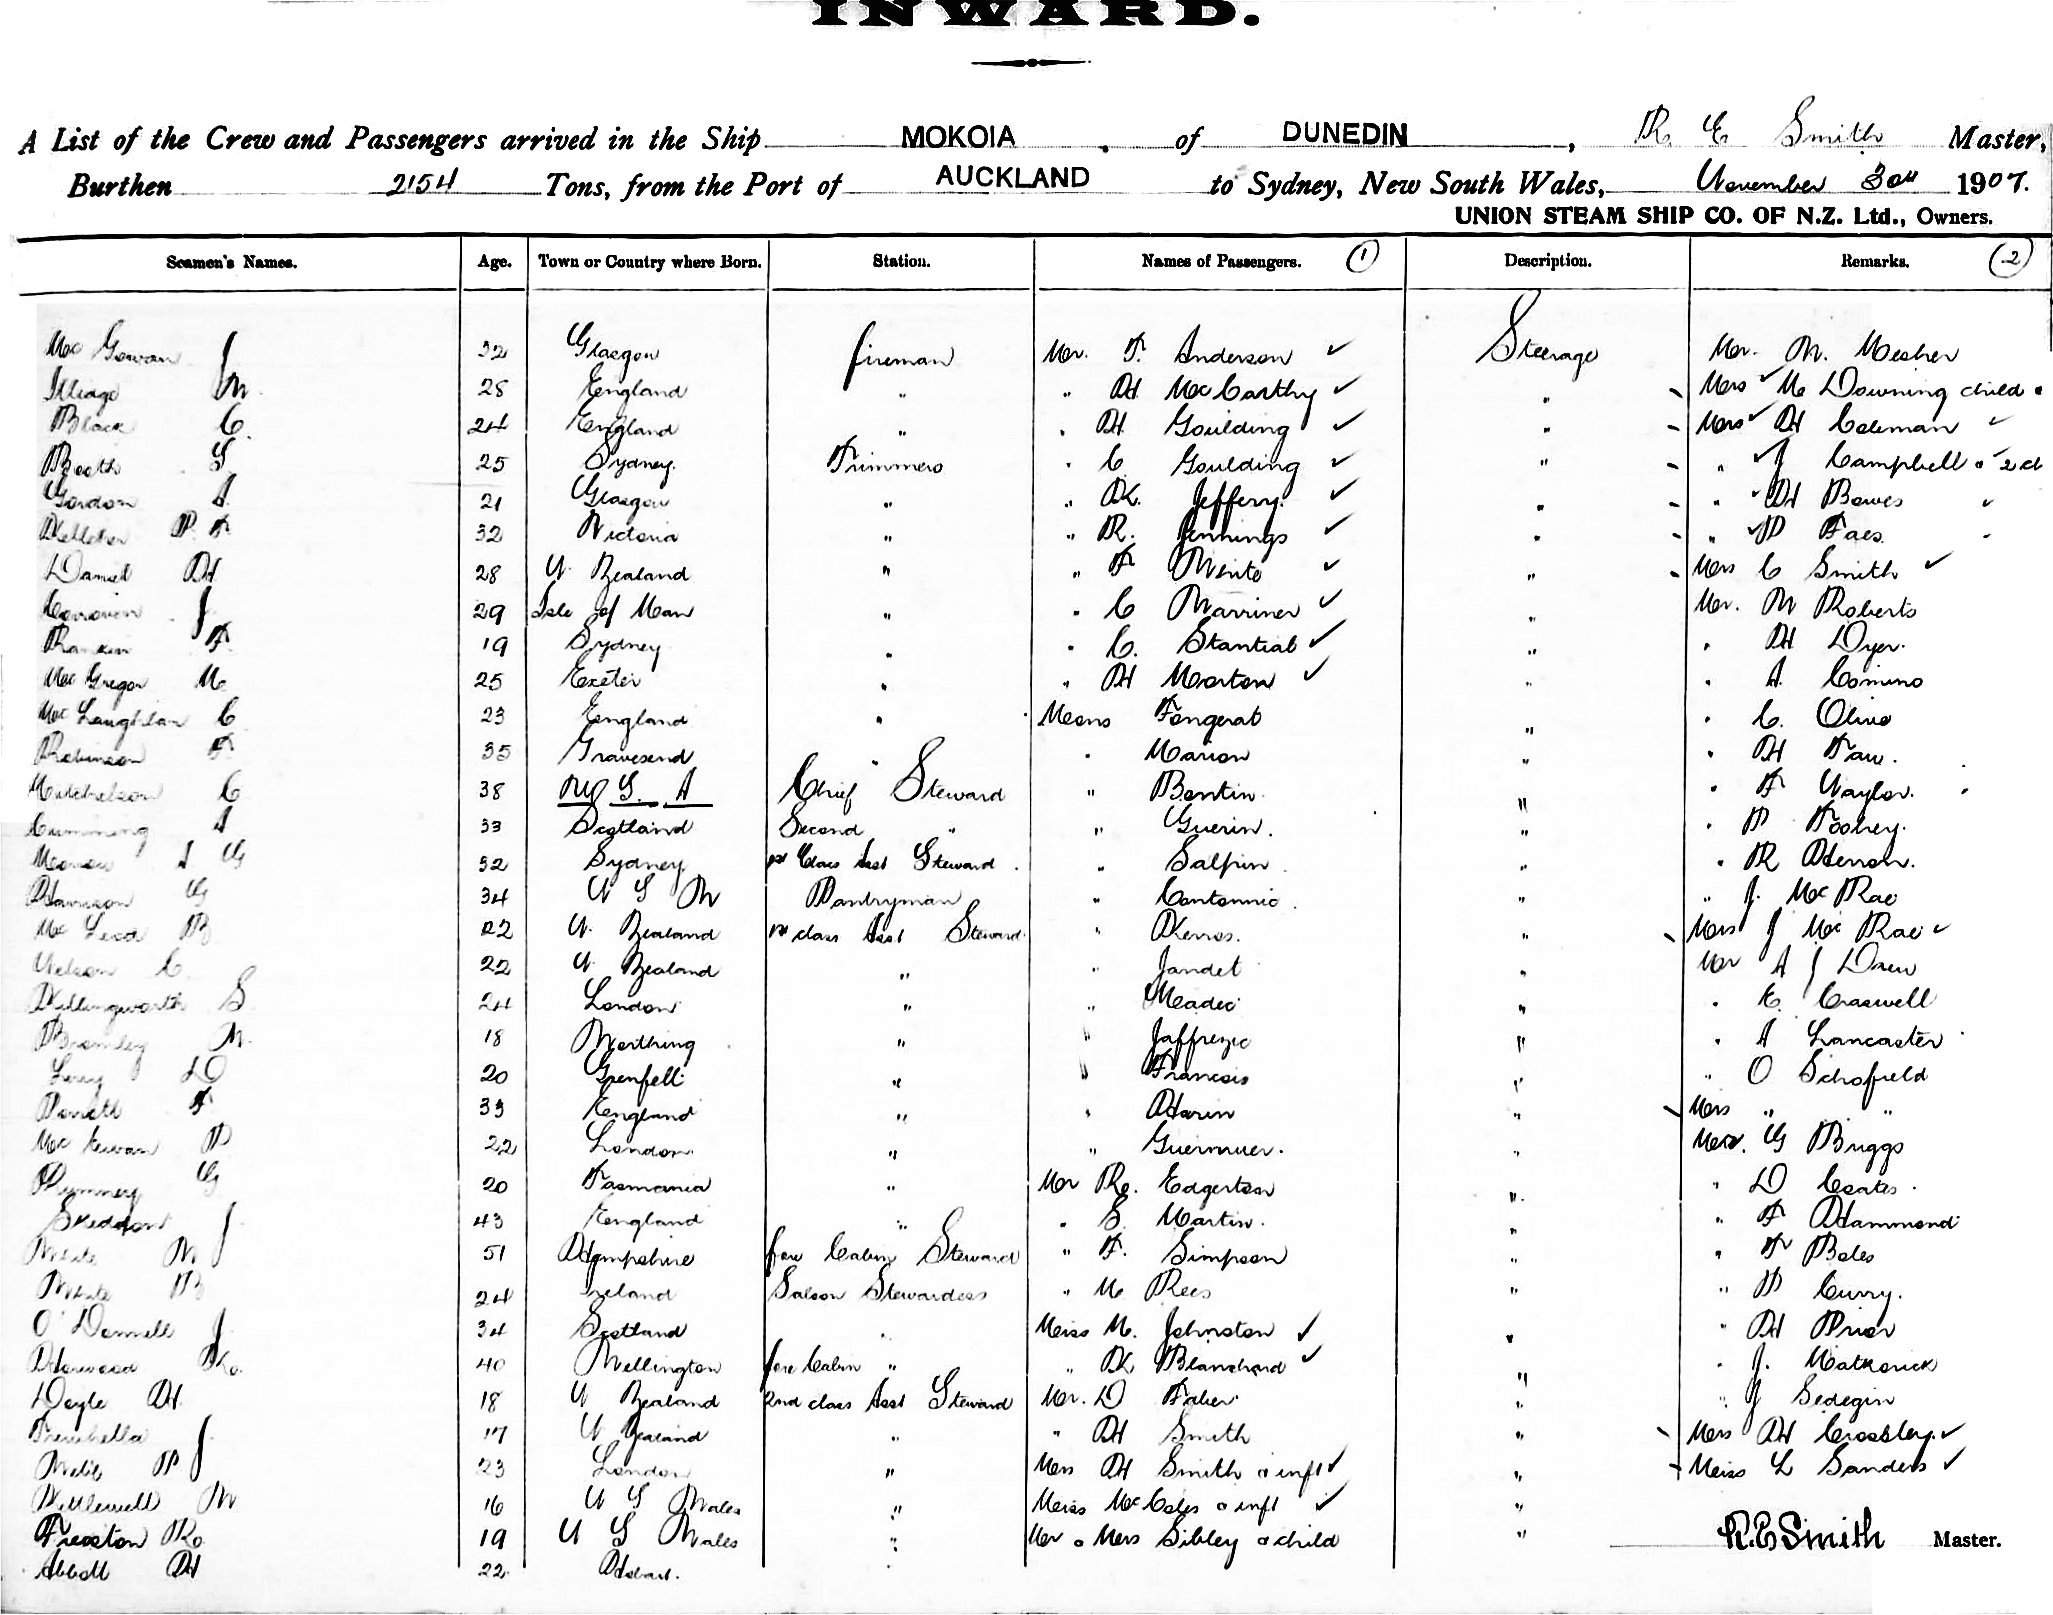 INWARD.
A List of the Crew and Passengers arrived in the Ship MOKOIA, of DUNEDIN, R. E Smith Master,
Burthen 2154 Tons, from the Port of AUCKLAND to Sydney, New South Wales, November 30th 1907.
UNION STEAM SHIP CO. OF N.Z. Ltd., Owners.
Seamen's Names. Age. Town or Country where Born. Station. Names of Passengers. (1) Description. Remarks. (2)
Mc Gowan J 32 Glasgow fireman Mr. F. Anderson ✓ Steerage Mr. W. Mesher
Illidge W. 28 England " " H McCarthy ✓ " Mrs ✓ M Downing child
Black C. 24 England " " H. Goulding ✓ " Mrs ✓ H Coleman ✓
Booth G 25 Sydney. Trimmers " C Goulding ✓ " " ✓ J Campbell & 2 ch
Gordon A. 21 Glasgow " " K. Jeffery. ✓ " " ✓ H Bowes ✓
Kelleher P. F 32 Victoria " " R. Jennings ✓ " " ✓ P Faes.
Daniel H 28 N Zealand " " F Minto ✓ " Mrs C Smith ✓
J 29 Isle of Man " " C Warriner ✓ " Mr. W Roberts
Rankin F. 19 Sydney " " C. Stantial ✓ " " H Dyer.
Mac Gregor M 25 Exeter " " H Morton ✓ " " A. Comino
Mac Laughlan C 23 England " Mons Fongerat " " C. Olive
Robinson F. 35 Gravesend " " Marion " " H Faw.
Mitchelson C 38 U.S.A Chief Steward " Bontin. " " F Naylor.
Cumming A 33 Scotland Second " " Guerin. " " P Toohey.
A G 32 Sydney. 1st Class Asst Steward " Salpin " " R Herron.
Harrison G 34 N S W Pantryman " Contonnic. " " J. McRae
Mc Leod B 22 N. Zealand 1st class Asst Steward. " Kerros. " Mrs J McRae ✓
Nelson C. 22 N Zealand " " Jandet " Mr A J Drew
Killingworth S. 24 London " " Meadec " " E. Craswell
Bromley W. 18 Worthing " " Jaffrezic " " A Lancaster
Levy D 20 Grenfell " " Francois " " O Schofield
F 33 England " " Harin " Mrs " "
Mc Ewan P 22 London. " " Guermuer. " Mr. G Briggs
G 20 Tasmania " Mr Ro. Edgerton " " D Coates
Skeddon J 43 England " " S. Martin. " " F Hammond
White W 51 Hampshire fore Cabin Steward " F. Simpson " " F Bates
White B 24 Ireland Saloon Stewardess " M Rees " " P Curry.
O'Donnell J 34 Scotland " Miss M. Johnston ✓ " " H Prior
Harwood Ro. 40 Wellington fore Cabin " " K Blanchard ✓ " " J.
Doyle H. 18 N Zealand 2nd class Asst Steward Mr. D Faber " " J Sedegin
Trembella J 17 N Zealand " " H Smith " Mrs H Crossley. ✓
P 23 London " Mrs H Smith & inft ✓ " Miss L Sanders ✓
Kettlewell W 16 N S Wales " Miss McColes & inft ✓ "
Freeston Ro 19 N S Wales " Mr & Mrs Sibley & child " R.E Smith Master.
Abbott H 22 Hobart.